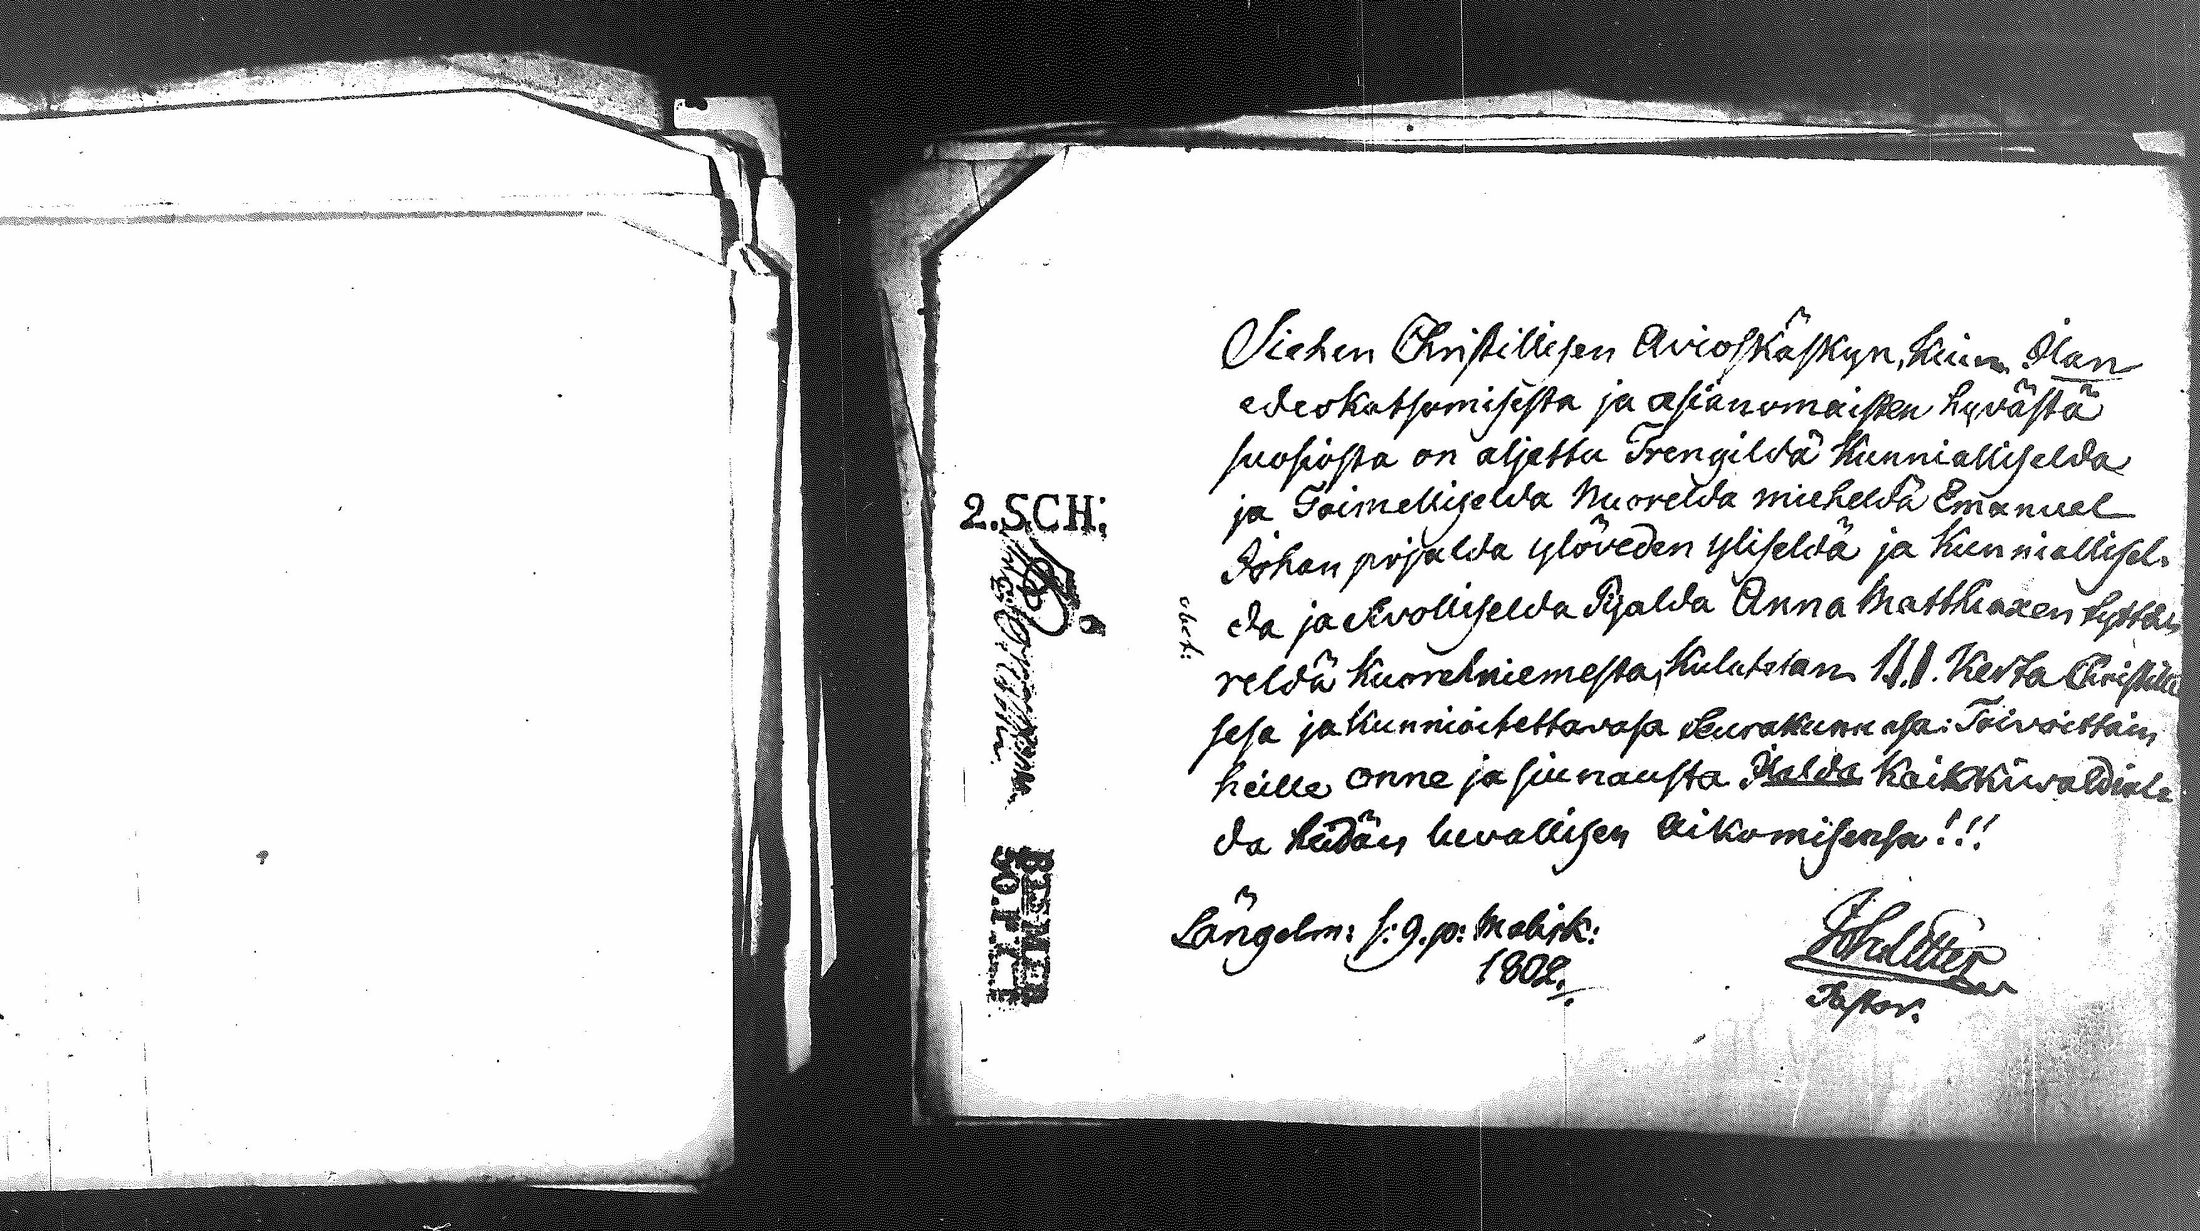 2. SCH:
Siehen Christillisen Avioskäskyn, kuin Ilan
edeskatsomisesta ja asianomaisten hyvästä
suosiosta on aljettu Trengildä Kunnialliselda
ja Toimelliselda Nuorelda mieheldä Emanuel
Johan pojalda ylöveden yliseldä ja Kunniallisel-
da ja Sivolliselda Pijalda Anna Matthiaxen tyttä
reldä Kuorehniemestä, Kulutetan 1. Kerta Christilli
sesa ja Kunnioitettavasa Seurakunnasa: Toivoittain
heille onne ja siunausta Ilalda Kaikkiwaldial-
da heidän luvallisen Aikomisensa!!!
Längelm: s: 9. p: Malisk:
1802.
Pastor.